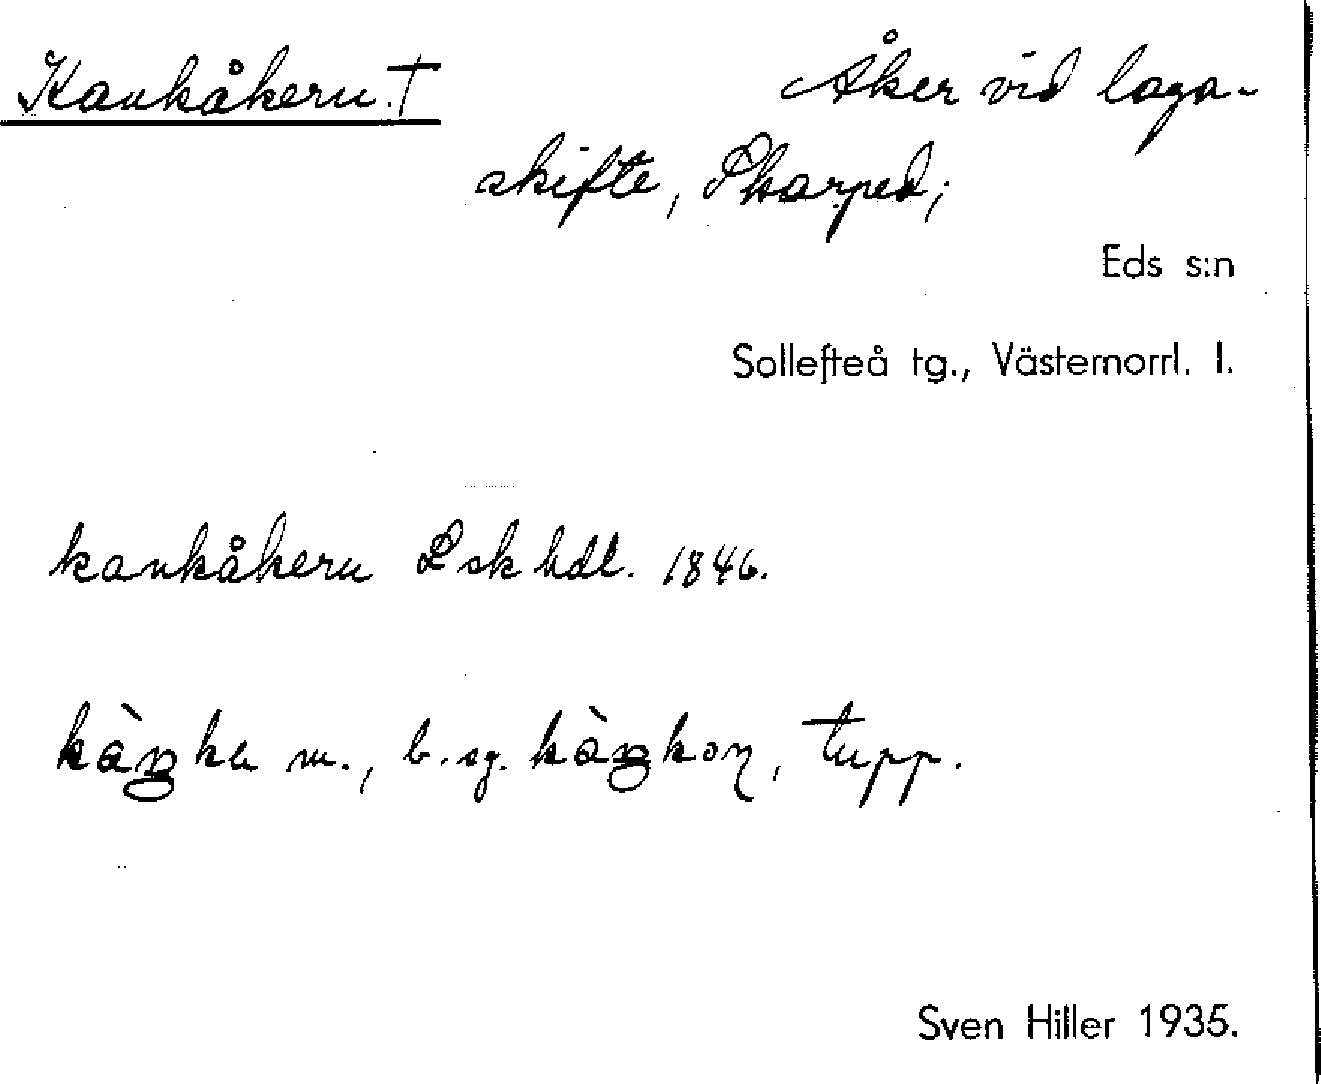 Kankåkern. † Åker vid laga-
skifte, Skarped;
Eds s:n
Sollefteå tg., Västernorrl. l.
kankåkern Lsk hdl. 1846.
m., b. sg. tupp.
Sven Hiller 1935.